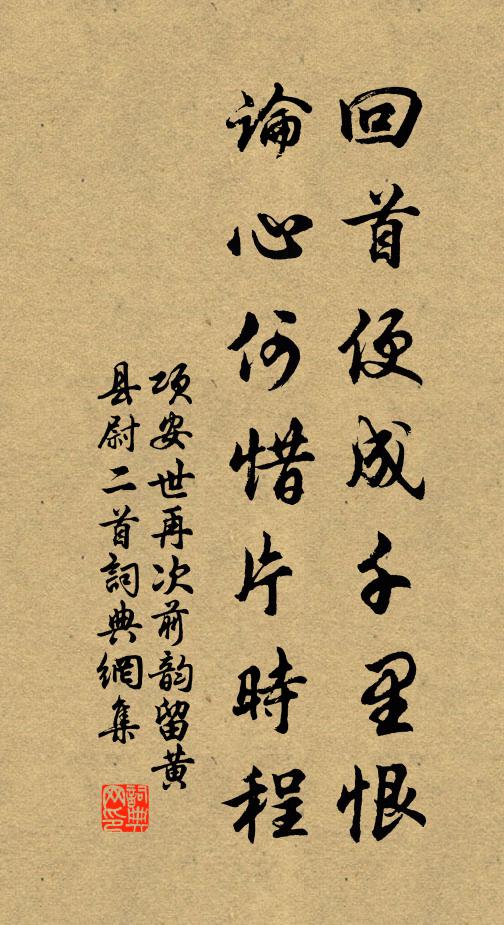 回首便成千里恨
論心何惜片時程
项安世再次前韵留黄
县尉二首詞典網集
詞典網印